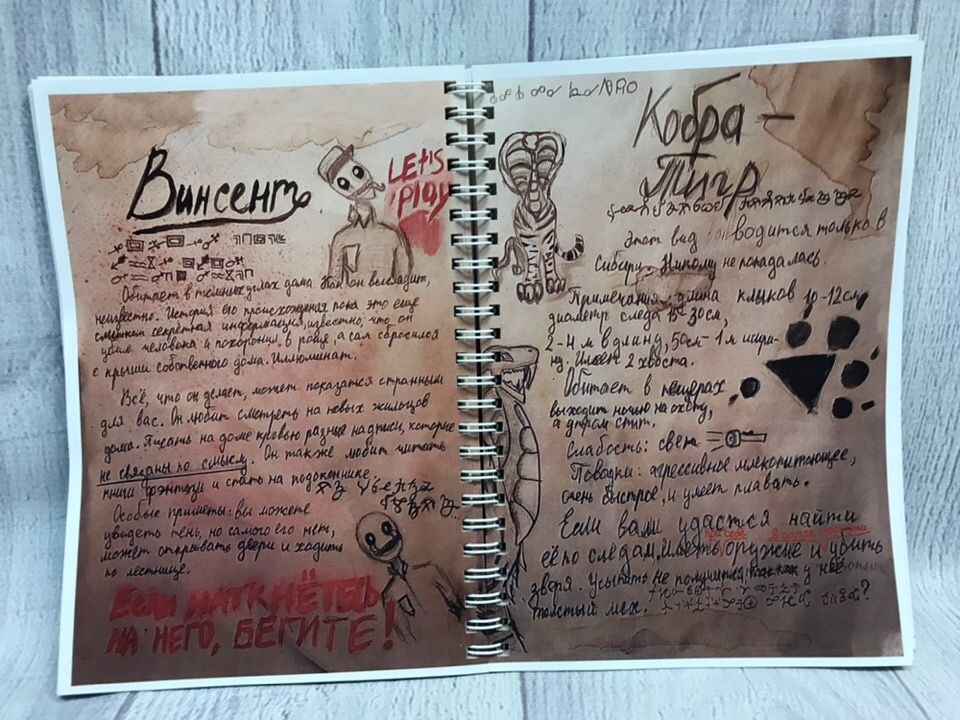 Винсент
LET'S
PLAY
Обитает в тёмных углах дома. Как он выглядит,
неизвестно. История его происхождения пока это ещё
слишком секретная информация, известно, что он
убил человека и похоронил в раице, а сам сбросился
с крыши собственного дома. Иллюминат.
Всё, что он делает, может показатся странным
для вас. Он любит смотреть на новых жильцов
дома. Писать на доме кровью разные надписи, которые
не связаны по смыслу. Он также любит читать
книги фэнтези и спать на подоконнике.
Особые приметы: вы можете
увидеть тень, но самого его нет,
может открывать двери и хадить
по лестнице.
ЕСЛИ НАТКНЁТЕСЬ
НА НЕГО, БЕГИТЕ!
Кобра-
Тигр
Этот вид водится только в
Сибири. Никому не попадалась.
Примечания: длина клыков 10-12см,
диаметр следа 15-30см,
2-4 м в длину, 50см-1м шири-
ну. Имеет 2 хвоста.
Обитает в пещерах
выходит ночью на охоту,
а утром спит.
Слабость: свет
Повадки: агрессивное млекопитающее,
очень быстрое, и умеет плавать.
Если вам удастся найти
при себе в случае
её по следам, иметь оружие и убить
зверя. Усыпить не получится, у неё
толстый мех.